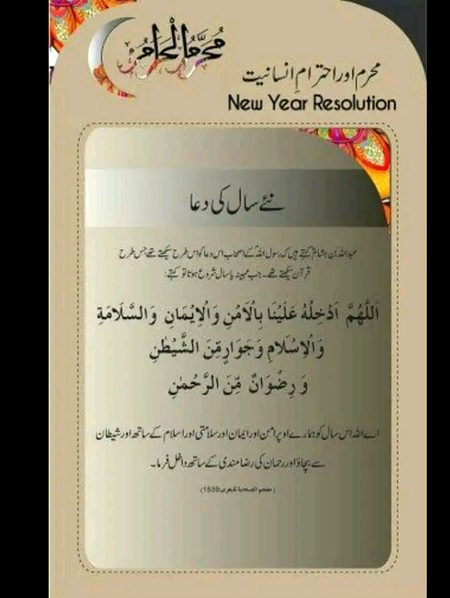 مُحَرَّمُ الْحَرَام
محرم اور احترامِ انسانیت
New Year Resolution
نئے سال کی دعا
عبداللہ بن ہشامؓ کہتے ہیں کہ رسول اللہؐ کے اصحاب اس دعا کو اس طرح سیکھتے تھے جس طرح
قرآن سیکھتے تھے۔ جب مہینہ یا سال شروع ہوتا تو کہتے:
اَللّٰهُمَّ اَدْخِلْهُ عَلَيْنَا بِالْاَمْنِ وَالْاِيْمَانِ وَالسَّلَامَةِ
وَالْاِسْلَامِ وَجَوَارٍ مِّنَ الشَّيْطٰنِ
وَرِضْوَانٌ مِّنَ الرَّحْمٰنِ
اے اللہ اس سال کو ہمارے اوپر امن اور ایمان اور سلامتی اور اسلام کے ساتھ اور شیطان
سے بچاؤ اور رحمان کی رضامندی کے ساتھ داخل فرما۔
(معجم الصحابة للبغوی 1539)